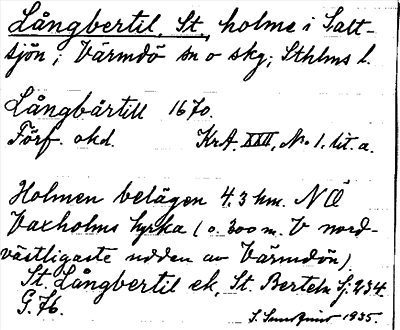 Långbertil, St., holme i Salt-
sjön; Värmdö sn o skg; Sthlms l.
Långbårtill 1670.
Förf. okd. KrA. XXII, No 1. lit. a.
Holmen belägen 4.3 km. NÖ
Vaxholms kyrka (o. 300 m. V nord-
västligaste udden av Värmdön).
St. Långbertil ek, St. Bertels Sj: 234.
G. 76.
1935